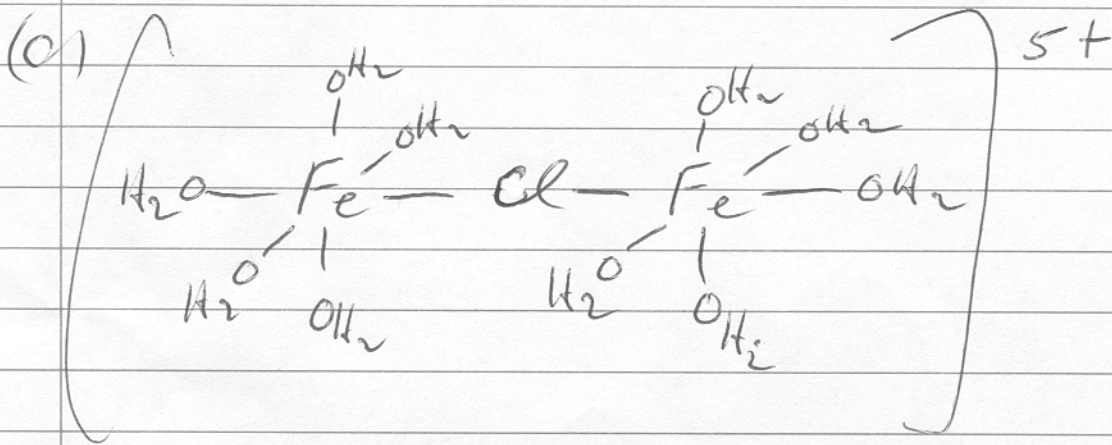 (c) 5+
OH2 OH2
OH2 OH2
H2O—Fe—Cl—Fe—OH2
H2O H2O
OH2 OH2